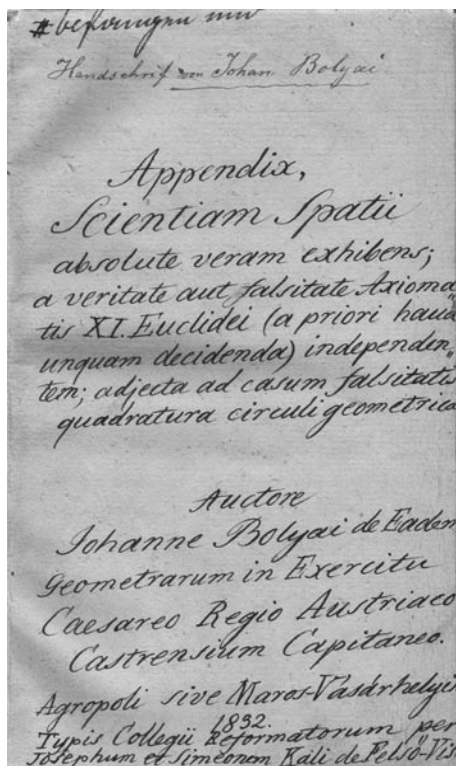 Handschrif von Johan Bolyai
Appendix,
Scientiam Spatii
absolute veram exhibens;
a veritate aut falsitate Axioma„
tis XI. Euclidei (a priori haud
unquam decidenda) independen„
tem; adjecta ad casum falsitatis
quadratura circuli geometrica
Auctore
Johanne Bolyai de Eadem
Geometrarum in Exercitu
Caesareo Regio Austriaco
Castrensium Capitaneo.
Agropoli sive Maros-Vásárhelyii
1832.
Typis Collegii Reformatorum per
Josephum et Simeonem Kali de Felsö-Vis